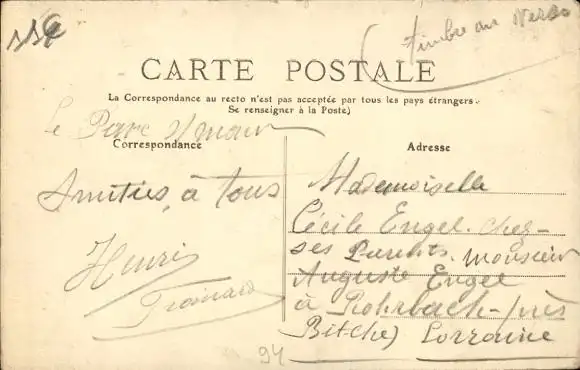 timbre au Verso
CARTE POSTALE
La Correspondance au recto n'est pas acceptée par tous les pays étrangers.
Se renseigner à la Poste)
Le Parc St Maur
Correspondance
Amitiés, à tous
Henri
Adresse
Mademoiselle
Cécile Engel. chez
ses Parents. Monsieur
Auguste Engel
à Rohrbach-près
Bitche) Lorraine
94